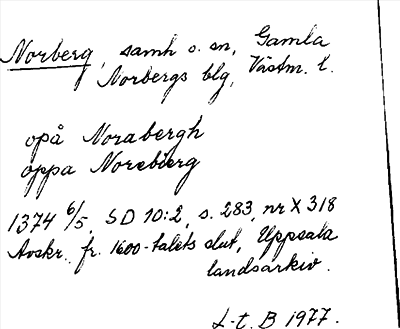 Norberg, samh o. sn, Gamla
Norbergs blg, Västm. l.
opå Norabergh
oppa Norebierg
1374 6/5, SD 10:2, s. 283, nr X 318
Avskr. fr. 1600-talets slut, Uppsala
landsarkiv.
L-t. B 1977.